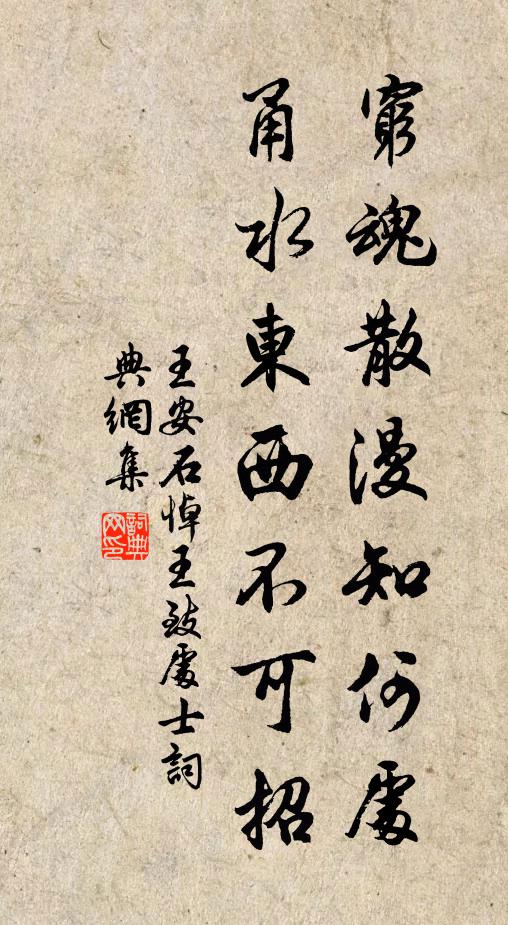 窮魂散漫知何處
甬水東西不可招
王安石悼王致處士詞
典網集
詞典網印